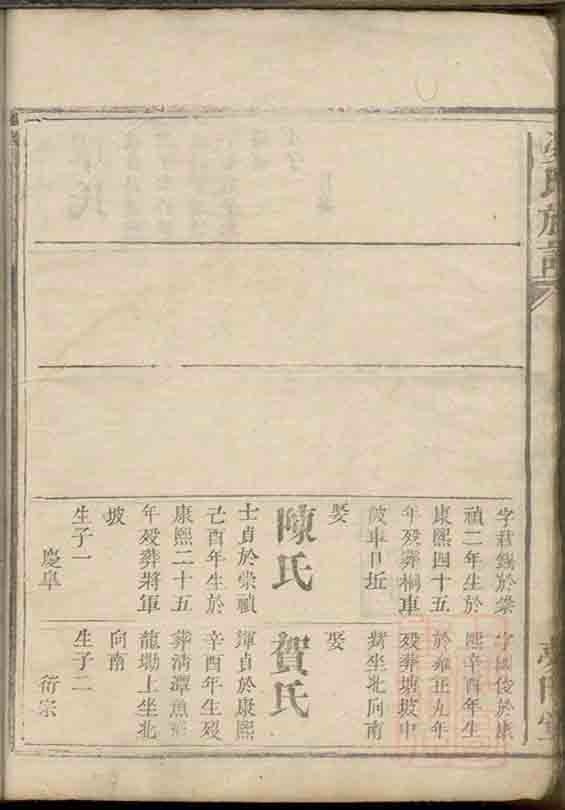 氏族
字君錫於崇
禎二年生於
康熙四十五
年歿葬桐車
坡車日坵
娶
陳氏
士貞於崇禎
己酉年生於
康熙二十五
年歿葬將軍
坡
生子一
慶阜
字國俊於康
熙辛酉年生
於雍正九年
歿葬塘坡中
坐北向南
娶
賀氏
貞於康熙
辛酉年生歿
葬清潭魚
龍塲上坐北
向南
生子二
衍宗